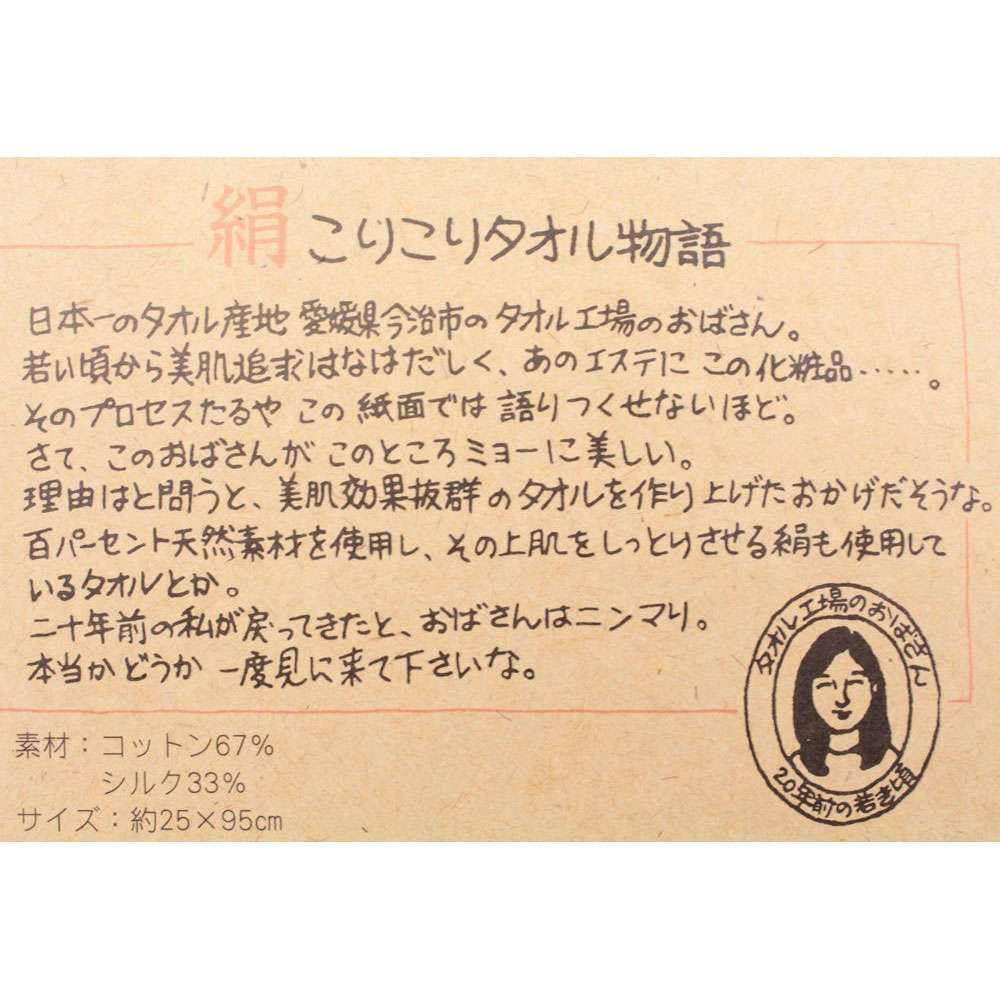 絹 こりこりタオル物語
日本一のタオル産地 愛媛県今治市のタオル工場のおばさん。
若い頃から美肌追求はなはだしく、あのエステに この化粧品……。
そのプロセスたるや この紙面では語りつくせないほど。
さて、このおばさんが このところミョーに美しい。
理由はと問うと、美肌効果抜群のタオルを作り上げたおかげだそうな。
百パーセント天然素材を使用し、その上肌をしっとりさせる絹も使用して
いるタオルとか。
二十年前の私が戻ってきたと、おばさんはニンマリ。
本当かどうか 一度見に来て下さいな。
タオル工場のおばさん
20年前の若き頃
素材：コットン67%
シルク33%
サイズ：約25×95cm